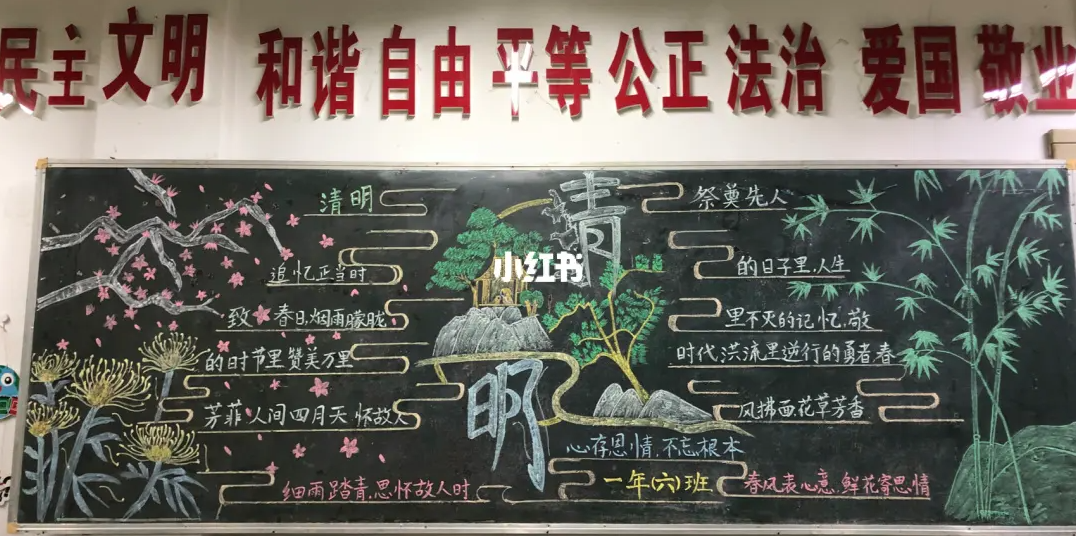 民主 文明 和谐 自由 平等 公正 法治 爱国 敬业
清明
追忆正当时
致 春日,烟雨朦胧
的时节里赞美万里
芳菲,人间四月天 怀故人
细雨踏青,思怀故人时
清
明
小红书
祭奠先人
的日子里,人生
里不灭的记忆,敬
时代洪流里逆行的勇者春
风拂面花草芳香
心存恩情,不忘根本
一年(六)班
春风表心意,鲜花寄思情